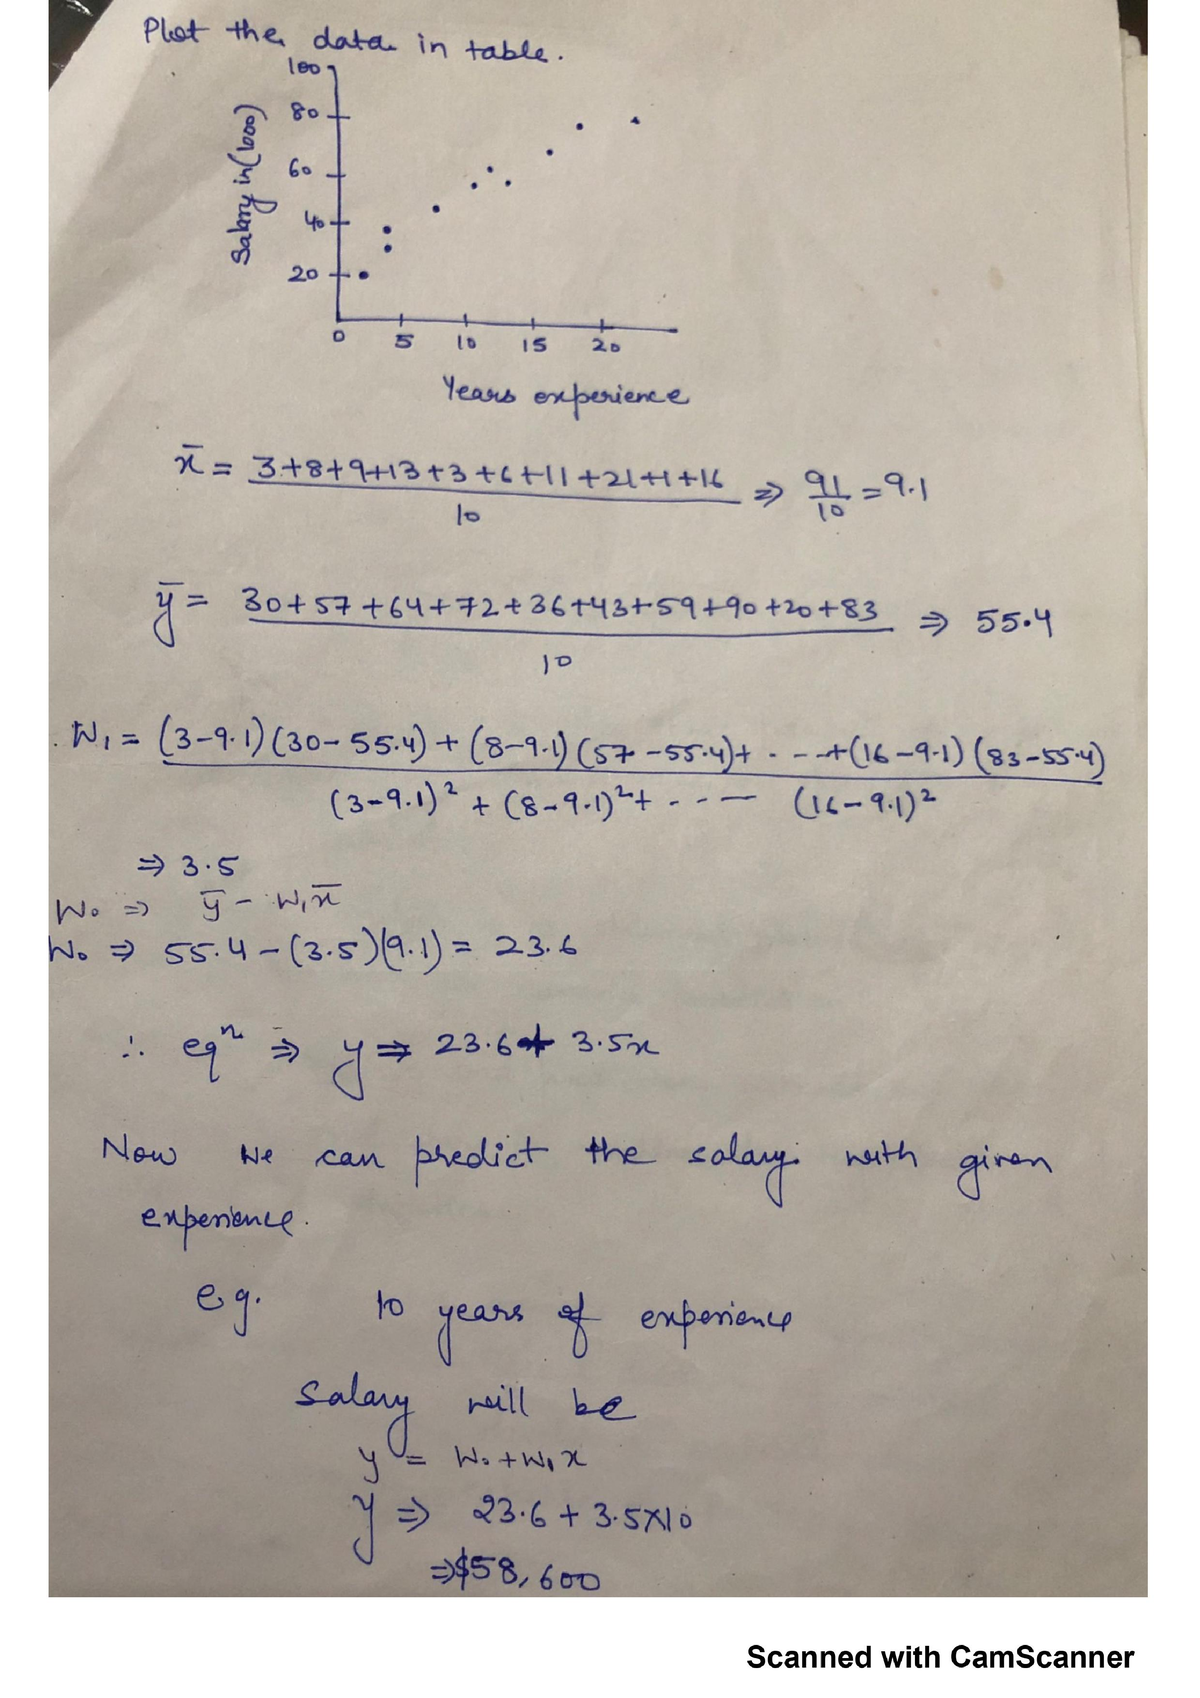 Plot the data in table.
100
80
60
40
20
Salary in (1000)
0 5 10 15 20
Years experience
x̄ = 3+8+9+13+3+6+11+21+1+16 ⇒ 91 = 9.1
10 10
ȳ = 30+57+64+72+36+43+59+90+20+83 ⇒ 55.4
10
W₁ = (3-9.1)(30-55.4)+(8-9.1)(57-55.4)+ . - - +(16-9.1)(83-55.4)
(3-9.1)² + (8-9.1)²+ - - - (16-9.1)²
⇒ 3.5
W₀ ⇒ ȳ - W₁x̄
W₀ ⇒ 55.4 - (3.5)(9.1) = 23.6
∴ eqⁿ ⇒ y ⇒ 23.6 + 3.5x
Now we can predict the salary with given
experience.
eg. 10 years of experience
Salary will be
y = W₀ + W₁ x
y ⇒ 23.6 + 3.5×10
⇒ $58,600
Scanned with CamScanner